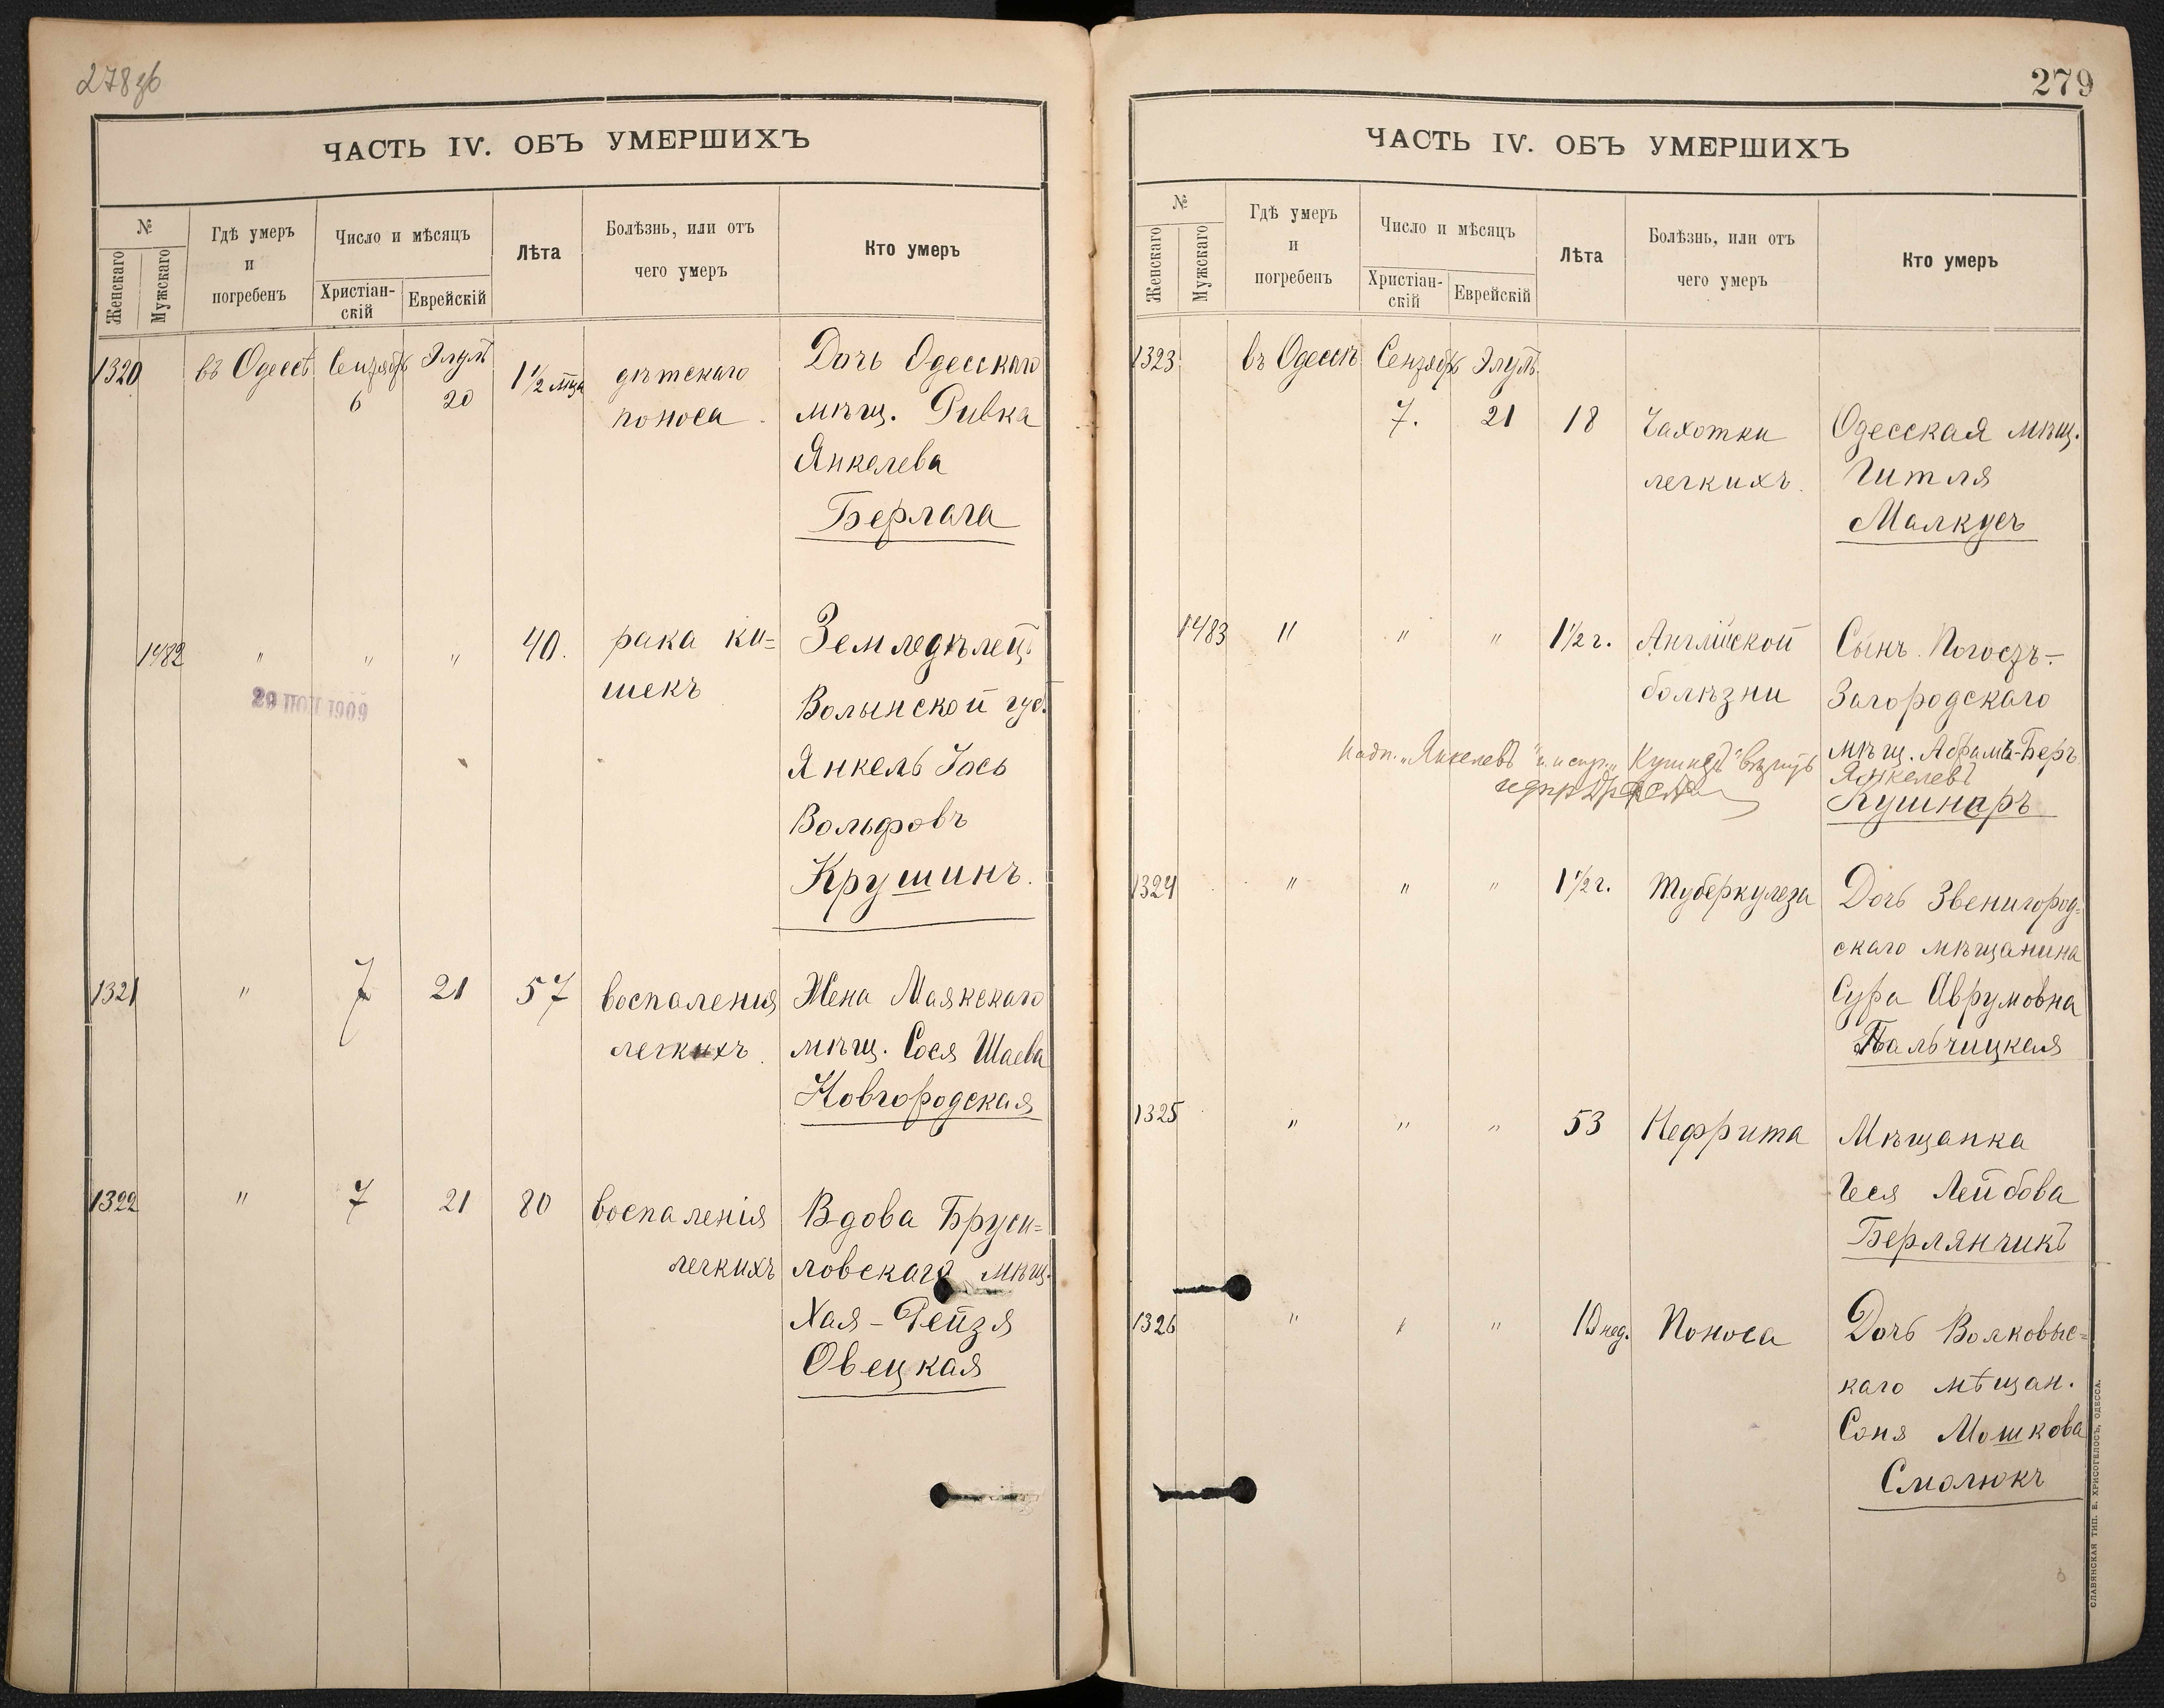 278 об
ЧАСТЬ IV. ОБЪ УМЕРШИХЪ
№
Женскаго
Мужскаго
Гдѣ умеръ
и
погребенъ
Число и мѣсяцъ
Христіан-
скій
Еврейскій
Лѣта
Болѣзнь, или отъ
чего умеръ
Кто умеръ
1320 въ Одессѣ Сентябр Элулъ 1 1/2 мца дѣтскаго Дочь Одесскаго
6 20 поноса мѣщ. Ривка
Янкелева
Берлага
1482 " " " 40. рака ки= Земледѣлец.
шекъ Волынской губ.
29 ІЮЛ 1909
Янкель Іось
Вольфовъ
Крушинъ.
1321 " 7 21 57 воспаленія Жена Маякскаго
легкихъ. мѣщ. Сося Шаева
Новгородская
1322 " 7 21 80 воспаленія Вдова Бруси=
легкихъ ловскаго мѣщ.
Хая-Рейзя
Овецкая
279
ЧАСТЬ IV. ОБЪ УМЕРШИХЪ
№
Женскаго
Мужскаго
Гдѣ умеръ
и
погребенъ
Число и мѣсяцъ
Христіан-
скій
Еврейскій
Лѣта
Болѣзнь, или отъ
чего умеръ
Кто умеръ
1323 въ Одессѣ Сентябр Элулъ.
7. 21 18 Чахотки Одесская мѣщ.
легкихъ. Гитля
Малкусъ
1483 " " " 1 1/2 г. Англійской Сынъ Погостъ-
болѣзни Загородскаго
Надп. "Янкелевъ" и испр. мѣщ. Абрамъ-Беръ
Янкелевъ
Кушнаръ
1324 " " " 1 1/2 г. Туберкулеза Дочь Звенигород=
скаго мѣщанина
Сура Аврумовна
Пальчицкая
1325 " " " 53 Нефрита Мѣщанка
Геся Лейбова
Берлянчикъ
1326 " " " 10 нед. Поноса Дочь Волковыс=
каго мѣщан.
Соня Мошкова
Смолюкъ
СЛАВЯНСКАЯ ТИП. Е. ХРИСОГЕЛОСЪ, ОДЕССА.